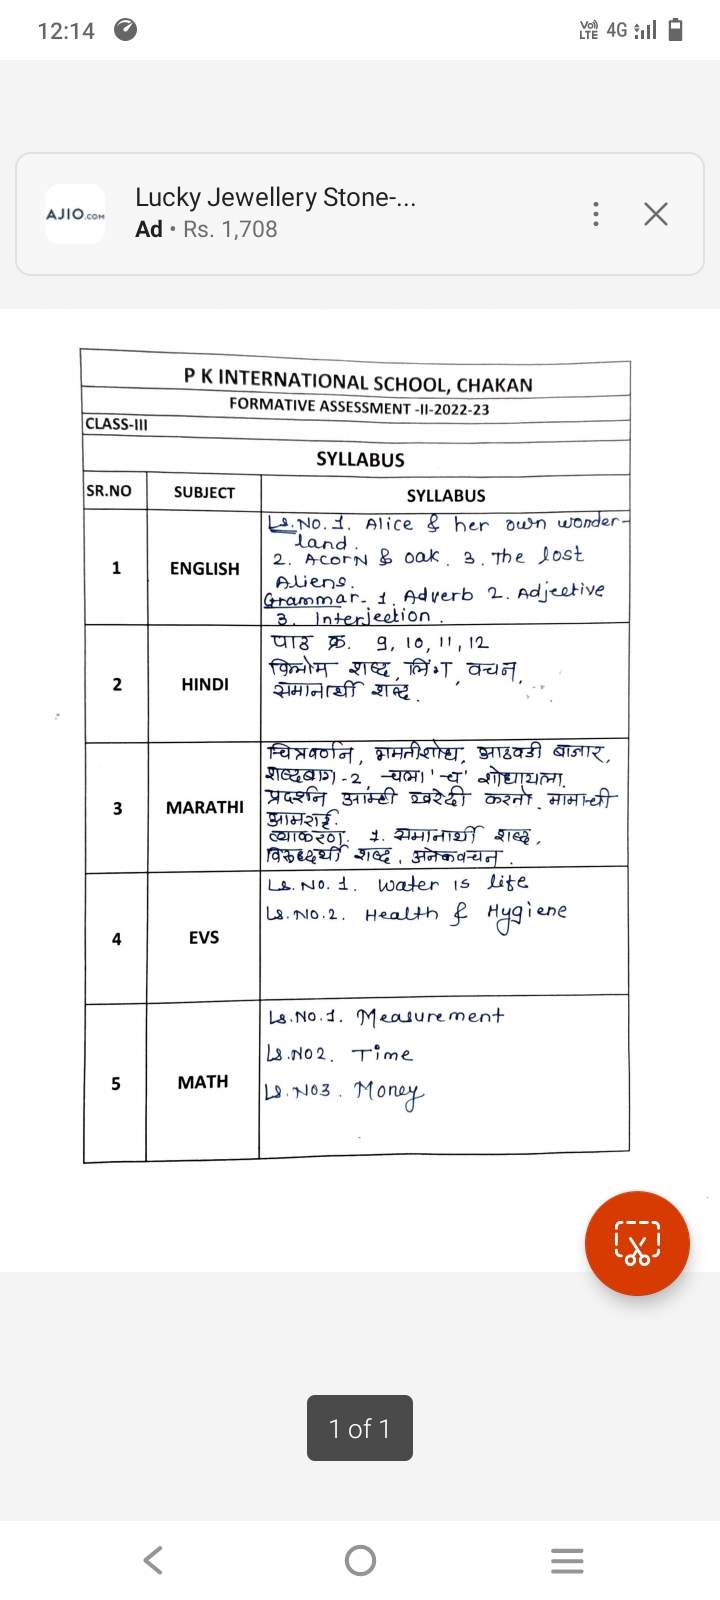 12:14
Vo)) LTE 4G
AJIO.COM
Lucky Jewellery Stone-...
Ad • Rs. 1,708
P K INTERNATIONAL SCHOOL, CHAKAN
FORMATIVE ASSESSMENT -II-2022-23
CLASS-III
SYLLABUS
SR.NO SUBJECT SYLLABUS
1 ENGLISH
Ls.No.1. Alice & her own wonder-
land.
2. Acorn & oak. 3. The lost
Aliens.
Grammar- 1. Adverb 2. Adjective
3. Interjection.
2 HINDI
पाठ क्र. 9, 10, 11, 12
विलोम शब्द, लिंग, वचन,
समानार्थी शब्द.
3 MARATHI
चित्रवर्णन, गमतीशोध, आठवडी बाजार,
शब्दबाग-2, चला 'च' शोधायला.
प्रदर्शन आम्ही खरेदी करतो, मामाची
आमराई.
व्याकरण. 1. समानार्थी शब्द,
विरुद्धार्थी शब्द, अनेकवचन.
4 EVS
Ls. No. 1. Water is life
Ls.No.2. Health & Hygiene
5 MATH
Ls.No.1. Measurement
Ls.No2. Time
Ls.No3. Money
1 of 1